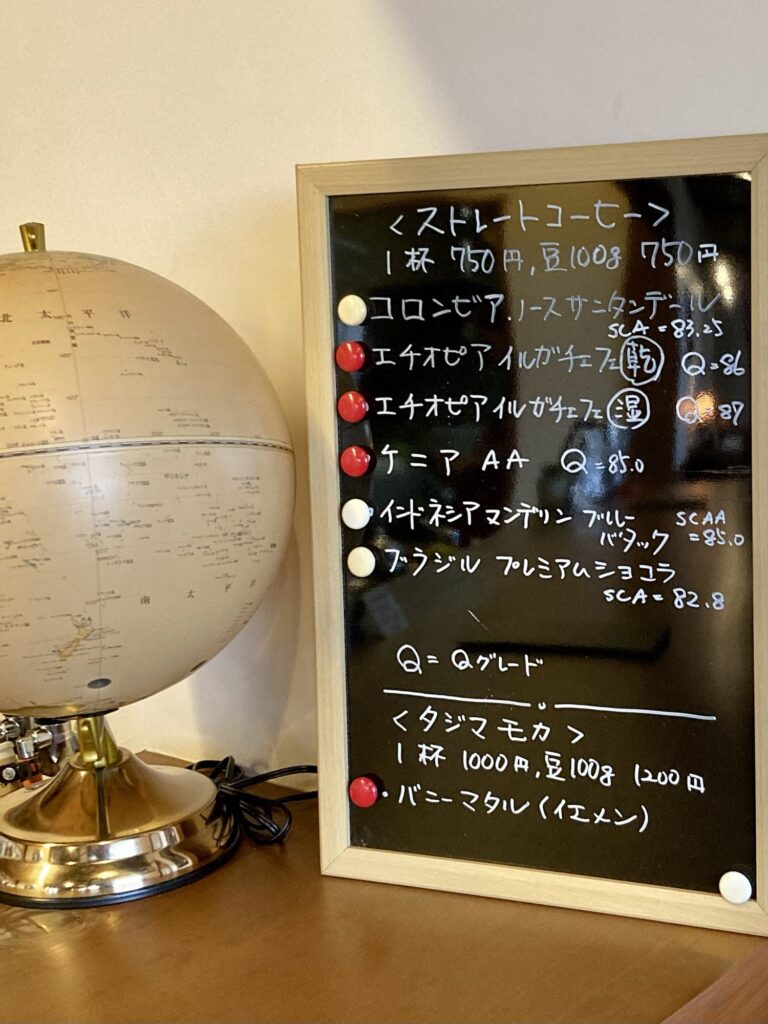 北太平洋
南太平洋
<ストレートコーヒー>
1杯 750円, 豆100g 750円
コロンビア.ノースサンタンデール
SCA = 83.25
エチオピアイルガチェフェ乾 Q=86
エチオピアイルガチェフェ湿 Q=87
ケニア AA Q=85.0
インドネシアマンデリン ブルー SCAA
バタック =85.0
ブラジル プレミアムショコラ
SCA = 82.8
Q = Qグレード
<タジマモカ>
1杯 1000円, 豆100g 1200円
・バニーマタル(イエメン)